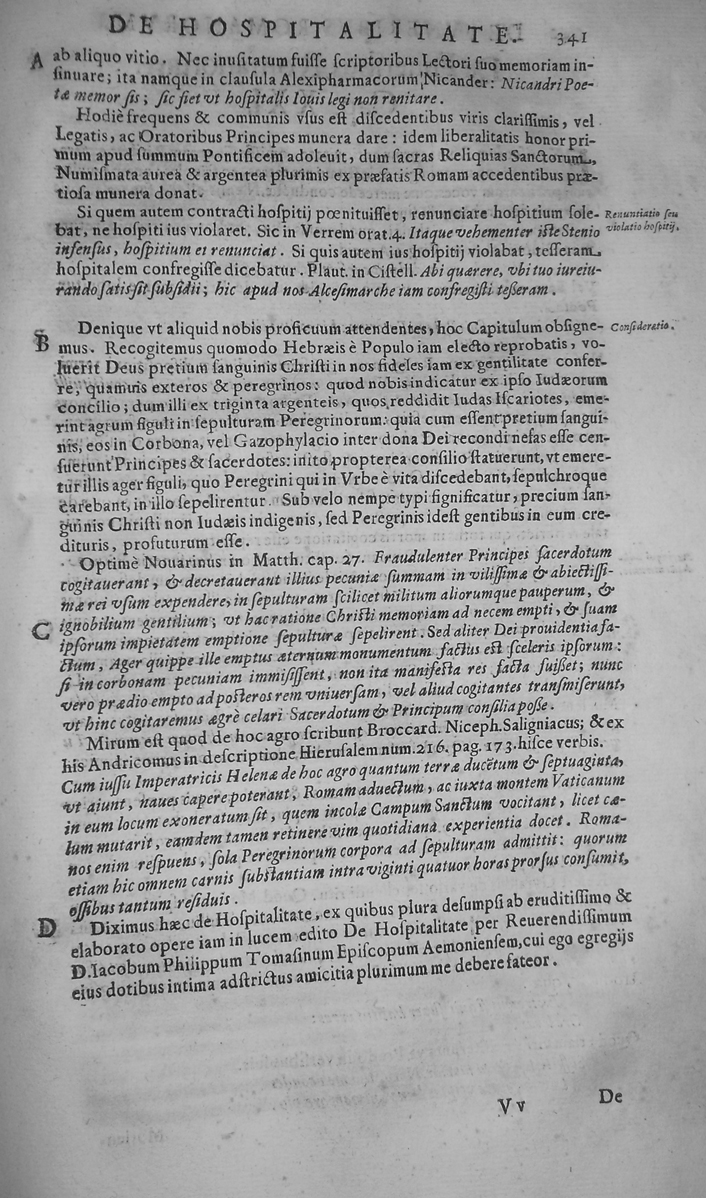 DE HOSPITALITATE. 341
A ab aliquo vitio. Nec inuſitatum fuiſſe ſcriptoribus Lectori ſuo memoriam in-
ſinuare; ita namque in clauſula Alexipharmacorum Nicander: Nicandri Poe-
tæ memor ſis; ſic fiet vt hoſpitalis Iouis legi non renitare.
Hodiè frequens & communis vſus eſt diſcedentibus viris clariſſimis, vel
Legatis, ac Oratoribus Principes munera dare: idem liberalitatis honor pri-
mum apud ſummum Pontificem adoleuit, dum ſacras Reliquias Sanctorum,
Numiſmata aurea & argentea plurimis ex præfatis Romam accedentibus præ-
tioſa munera donat.
Si quem autem contracti hoſpitij pœnituiſſet, renunciare hoſpitium ſole- Renuntiatio ſeu
bat, ne hoſpiti ius violaret. Sic in Verrem orat.4. Itaque vehementer iſte Stenio violatio hoſpitij.
infenſus, hoſpitium et renunciat. Si quis autem ius hoſpitij violabat, teſſeram
hoſpitalem confregiſſe dicebatur. Plaut. in Ciſtell. Abi quærere, vbi tuo iureiu-
rando ſatis ſit ſubſidii; hic apud nos Alceſimarche iam confregiſti teßeram.
Denique vt aliquid nobis proficuum attendentes, hoc Capitulum obſigne- Conſideratio.
B mus. Recogitemus quomodo Hebræis è Populo iam electo reprobatis, vo-
luerit Deus pretium ſanguinis Chriſti in nos fideles iam ex gentilitate confer-
re, quamuis exteros & peregrinos: quod nobis indicatur ex ipſo Iudæorum
concilio; dum illi ex triginta argenteis, quos reddidit Iudas Iſcariotes, eme-
rint agrum figuli in ſepulturam Peregrinorum: quia cum eſſent pretium ſangui-
nis, eos in Corbona, vel Gazophylacio inter dona Dei recondi nefas eſſe cen-
ſuerunt Principes & ſacerdotes: inito propterea conſilio ſtatuerunt, vt emere-
tur illis ager figuli, quo Peregrini qui in Vrbe è vita diſcedebant, ſepulchroque
carebant, in illo ſepelirentur. Sub velo nempe typi ſignificatur, precium ſan-
guinis Chriſti non Iudæis indigenis, ſed Peregrinis ideſt gentibus in eum cre-
dituris, profuturum eſſe.
Optimè Nouarinus in Matth. cap. 27. Fraudulenter Principes ſacerdotum
cogitauerant, & decretauerant illius pecuniæ ſummam in viliſſimæ & abiectiſſi-
mæ rei vſum expendere, in ſepulturam ſcilicet militum aliorumque pauperum, &
C ignobilium gentilium; vt hac ratione Chriſti memoriam ad necem empti, & ſuam
ipſorum impietatem emptione ſepulturæ ſepelirent. Sed aliter Dei prouidentia fa-
ctum, Ager quippe ille emptus æternum monumentum factus eſt ſceleris ipſorum:
ſi in corbonam pecuniam immiſiſſent, non ita manifeſta res facta fuißet; nunc
vero prædio empto ad poſteros rem vniuerſam, vel aliud cogitantes tranſmiſerunt,
vt hinc cogitaremus ægrè celari Sacerdotum & Principum conſilia poſſe.
Mirum eſt quod de hoc agro ſcribunt Broccard. Niceph. Saligniacus; & ex
his Andricomus in deſcriptione Hieruſalem num.216. pag. 173. hiſce verbis.
Cum iuſſu Imperatricis Helenæ de hoc agro quantum terræ ducẽtum & ſeptuaginta,
vt aiunt, naues capere poterant, Romam aduectum, ac iuxta montem Vaticanum
in eum locum exoneratum ſit, quem incolæ Campum Sanctum vocitant, licet cæ-
lum mutarit, eamdem tamen retinere vim quotidiana experientia docet. Roma-
nos enim reſpuens, ſola Peregrinorum corpora ad ſepulturam admittit: quorum
etiam hic omnem carnis ſubſtantiam intra viginti quatuor horas prorſus conſumit,
oſſibus tantum reſiduis.
D Diximus hæc de Hoſpitalitate, ex quibus plura deſumpſi ab eruditiſſimo &
elaborato opere iam in lucem edito De Hoſpitalitate per Reuerendiſſimum
D. Iacobum Philippum Tomaſinum Epiſcopum Aemonienſem, cui ego egregijs
eius dotibus intima adſtrictus amicitia plurimum me debere fateor.
Vv De